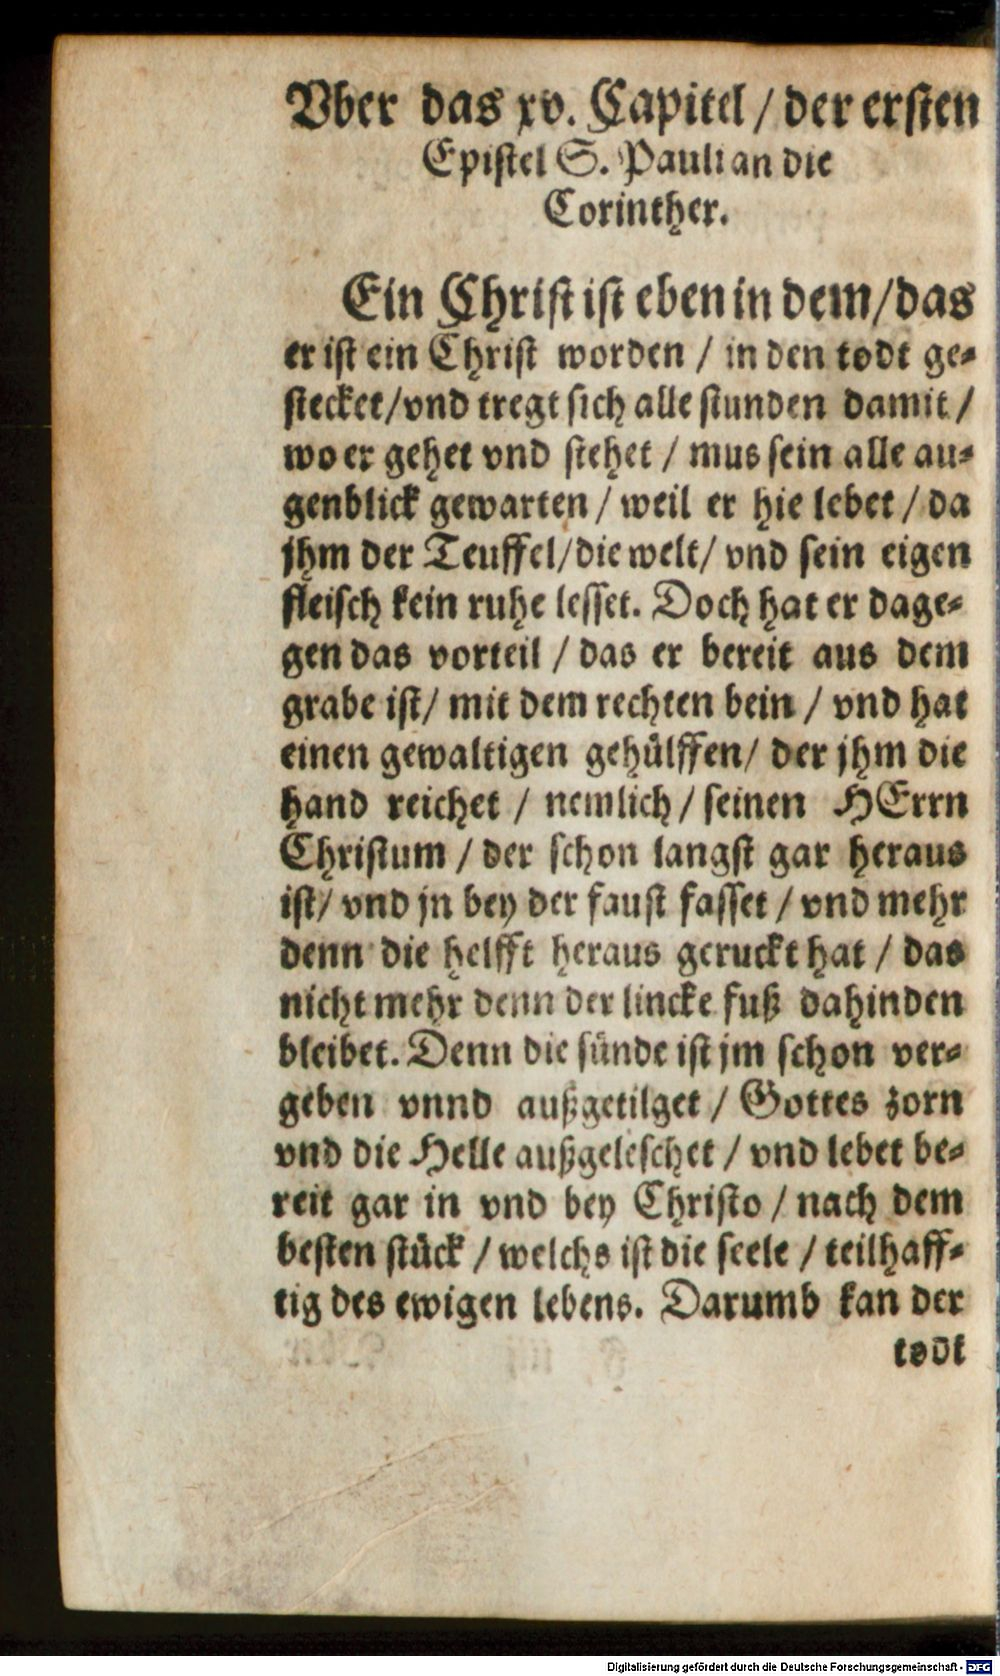 Vber das xv. Capitel / der ersten
Epistel S. Pauli an die
Corinther.
Ein Christ ist eben in dem / das
er ist ein Christ worden / in den todt ge-
stecket / vnd tregt sich alle stunden damit /
wo er gehet vnd stehet / mus sein alle au-
genblick gewarten / weil er hie lebet / da
jhm der Teuffel / die welt / vnd sein eigen
fleisch kein ruhe lesset. Doch hat er dage-
gen das vorteil / das er bereit aus dem
grabe ist / mit dem rechten bein / vnd hat
einen gewaltigen gehülffen / der jhm die
hand reichet / nemlich / seinen HErrn
Christum / der schon langst gar heraus
ist / vnd jn bey der faust fasset / vnd mehr
denn die helfft heraus geruckt hat / das
nicht mehr denn der lincke fuß dahinden
bleibet. Denn die sünde ist jm schon ver-
geben vnnd außgetilget / Gottes zorn
vnd die Helle außgeleschet / vnd lebet be-
reit gar in vnd bey Christo / nach dem
besten stück / welchs ist die seele / teilhaff-
tig des ewigen lebens. Darumb kan der
todt
Digitalisierung gefördert durch die Deutsche Forschungsgemeinschaft - DFG